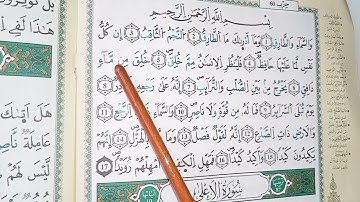 حزب 60
بِسْمِ اللَّهِ الرَّحْمَٰنِ الرَّحِيمِ
وَالسَّمَاءِ وَالطَّارِقِ 1 وَمَا أَدْرَاكَ مَا الطَّارِقُ 2 النَّجْمُ الثَّاقِبُ 3 إِن كُلُّ
نَفْسٍ لَّمَّا عَلَيْهَا حَافِظٌ 4 فَلْيَنظُرِ الْإِنسَانُ مِمَّ خُلِقَ 5 خُلِقَ مِن مَّاءٍ
دَافِقٍ 6 يَخْرُجُ مِن بَيْنِ الصُّلْبِ وَالتَّرَائِبِ 7 إِنَّهُ عَلَىٰ رَجْعِهِ لَقَادِرٌ 8
يَوْمَ تُبْلَى السَّرَائِرُ 9 فَمَا لَهُ مِن قُوَّةٍ وَلَا نَاصِرٍ 10 وَالسَّمَاءِ ذَاتِ الرَّجْعِ 11
وَالْأَرْضِ ذَاتِ الصَّدْعِ 12 إِنَّهُ لَقَوْلٌ فَصْلٌ 13 وَمَا هُوَ بِالْهَزْلِ 14 إِنَّهُمْ
يَكِيدُونَ كَيْدًا 15 وَأَكِيدُ كَيْدًا 16 فَمَهِّلِ الْكَافِرِينَ أَمْهِلْهُمْ رُوَيْدًا 17
سُورَةُ الْأَعْلَىٰ